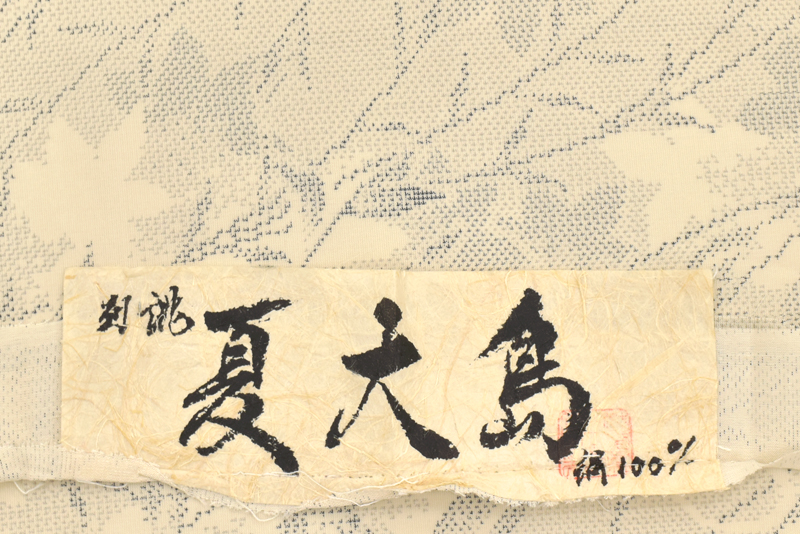 別誂
夏大島
絹100%